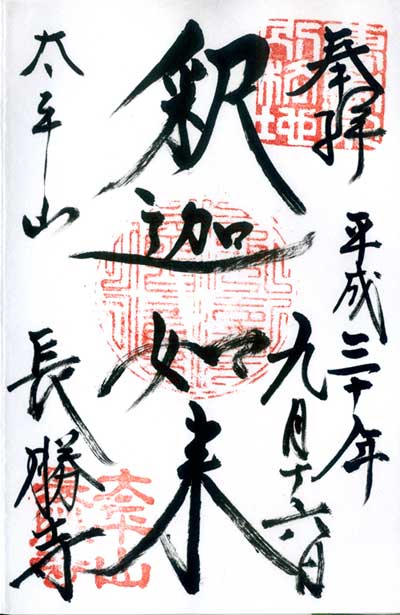 奉拝
平成三十年
九月十六日
釈迦如来
太平山
長勝寺